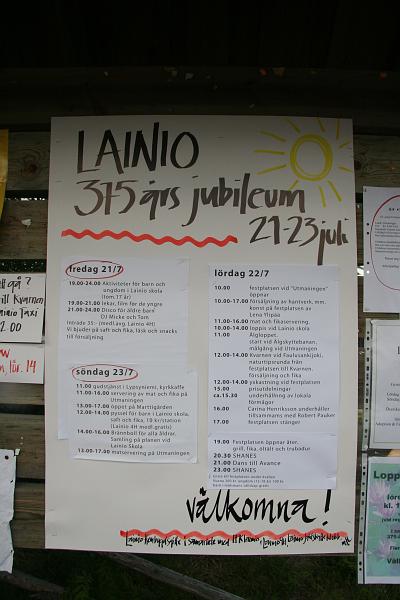 LAINIO
375 års jubileum
21-23 juli
fredag 21/7
19.00-24.00 Aktiviteter för barn och
ungdom i Lainio skola
(tom.17 år)
19.00-21.00 lekar, film för de yngre
21.00-24.00 Disco för äldre barn
DJ Micke och Tom
inträde 35:- (medl.avg. Lainio 4H)
Vi bjuder på saft och fika, läsk och snacks
till försäljning
söndag 23/7
11.00 gudstjänst i Lypsyniemi, kyrkkaffe
11.00-16.00 servering av mat och fika på
Utmaningen
13.00-17.00 öppet på Martigården
12.00-14.00 pyssel för barn i Lainio skola,
saft och fika, 10 kr/station
(Lainio 4H medl.gratis)
14.00-16.00 Brännboll för alla åldrar.
Samling på planen vid
Lainio Skola
13.00-17.00 matservering på Utmaningen
lördag 22/7
10.00 festplatsen vid "Utmaningen"
öppnar
10.00-17.00 försäljning av hantverk, mm.
konst på festplatsen av
Lena Ylipää
11.00-16.00 mat och fikaservering
10.00-14.00 loppis vid Lainio skola
11.00 Älgloppet.
start vid Älgskyttebanan,
målgång vid Utmaningen
12.00-14.00 Kvarnen vid
naturtipsrunda från
festplatsen till Kvarnen.
försäljning och fika
12.00-14.00 yxkastning vid festplatsen
15.00 prisutdelning
ca.15.30 underhållning av lokala
förmågor
16.00 Carina Henriksson underhåller
tillsammans med Robert Pauker
17.00 festplatsen stänger
19.00 Festplatsen öppnar åter.
grill, fika, öltält och trobadur
20.30 SHANES
21.00 Dans till Avance
23.00 SHANES
välkomna!
Lainio i samarbete med
till Kvarnen
Taxi
Lopp